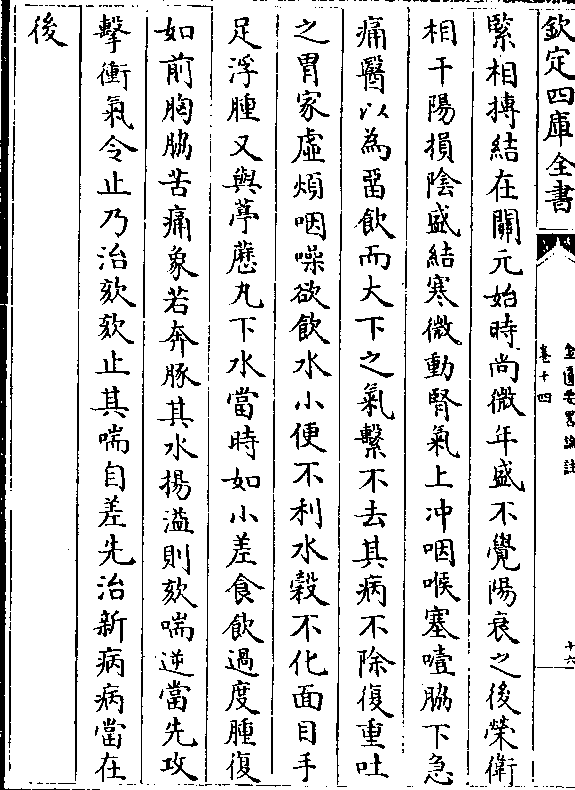 欽定四庫全書
金匱要略論註
卷十四
十六
緊相搏結在關元始時尚微年盛不覺陽衰之後榮衛
相干陽損陰盛結寒微動腎氣上冲咽喉塞噎脇下急
痛醫以為畱飲而大下之氣繫不去其病不除復重吐
之胃家虛煩咽噪欲飲水小便不利水穀不化面目手
足浮腫又與葶藶丸下水當時如小差食飲過度腫復
如前胸脇苦痛象若奔豚其水揚溢則欬喘逆當先攻
擊衝氣令止乃治欬欬止其喘自差先治新病病當在
後